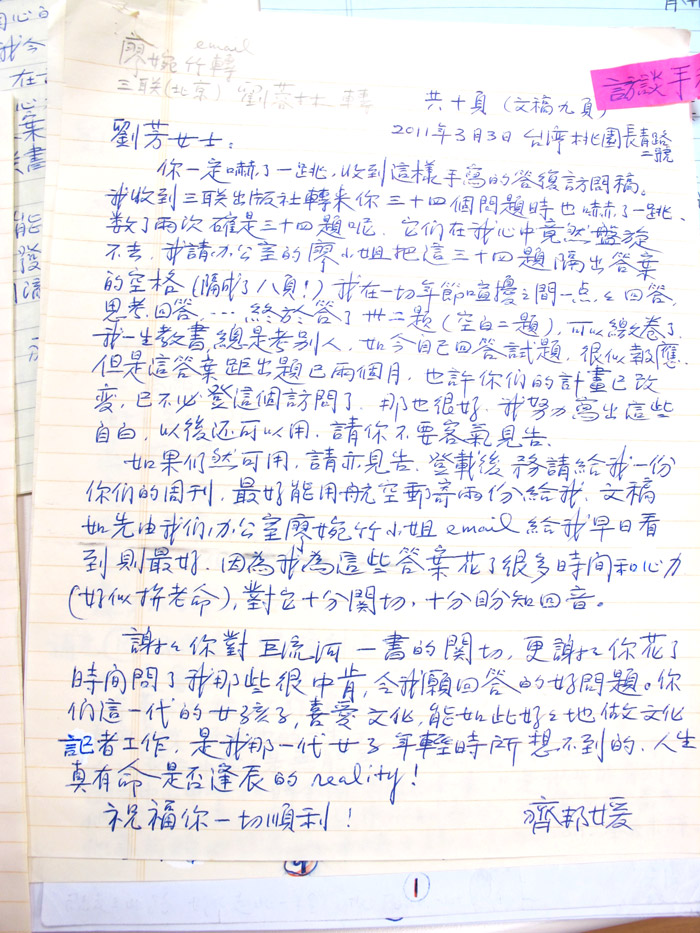 email
廖婉竹轉
三联(北京) 劉蓉林 轉
訪談手
共十頁 (文稿九頁)
2011年3月3日 台灣桃園長青路
二號
劉芳女士:
你一定嚇了一跳,收到這樣手寫的答復訪問稿。
我收到三联出版社轉来你三十四個問題時也嚇了一跳、
数了兩次確是三十四題呢. 它们在我心中竟然盤旋
不去,我請办公室的廖小姐把這三十四題隔出答案
的空格(隔成了八頁!)我在一切年節喧擾之間一点々回答,
思考.回答,… 終於答了卅二題(空白二題),可以繳卷了.
我一生教書,總是考别人,如今自己回答試題,很似報應.
但是這答案距出題已兩個月,也許你们的計畫已改
变,已不必登這個訪問了.那也很好.我努力寫出這些
自白,以後还可以用.請你不要客氣見告.
如果仍然可用,請亦見告.登載後務請給我一份
你们的周刊,最好能用航空郵寄兩份給我.文稿
如先由我们办公室廖婉竹小姐email給我早日看
到則最好.因為我為這些答案花了很多時間和心力
(好似拚老命),對它十分関切,十分盼知回音。
謝々你對巨流河一書的関切,更謝々你花了
時間問了我那些很中肯,令我願回答的好問題。你
們這一代的女孩子,喜愛文化,能如此好々地做文化
記者工作,是我那一代女子年輕時所想不到的,人生
真有命是否逢辰的reality!
祝福你一切順利!
齊邦媛
1